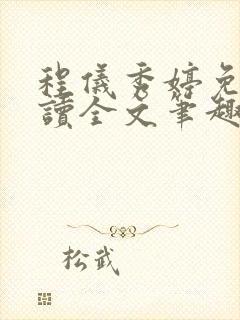 程儀秀婷免
讀全文筆趣
松武